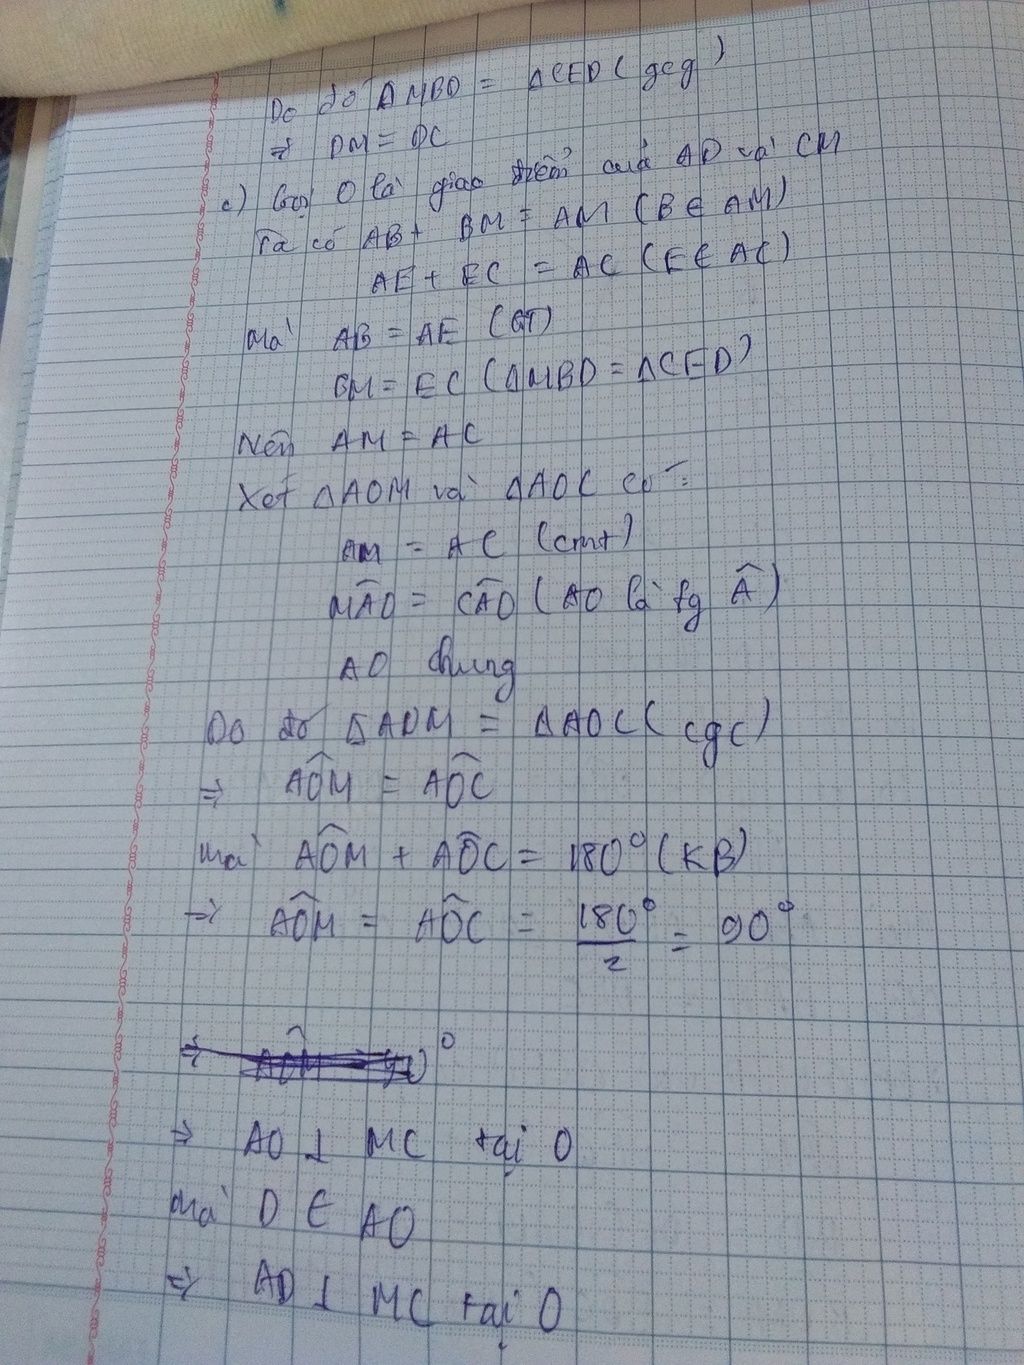 Do đó ΔMBD = ΔCED ( gcg )
⇒ DM = DC
c) Gọi O là giao điểm của AD và CM
Ta có AB + BM = AM ( B ∈ AM )
AE + EC = AC ( E ∈ AC )
Mà AB = AE ( GT )
BM = EC ( ΔMBD = ΔCED )
Nên AM = AC
Xét ΔAOM và ΔAOC có :
AM = AC ( cmt )
MÂO = CÂO ( AO là fg Â )
AO chung
Do đó ΔAOM = ΔAOC ( cgc )
⇒ AÔM = AÔC
mà AÔM + AÔC = 180° ( KB )
⇒ AÔM = AÔC = 180°/2 = 90°
⇒ AO ⊥ MC tại O
Mà D ∈ AO
⇒ AD ⊥ MC tại O